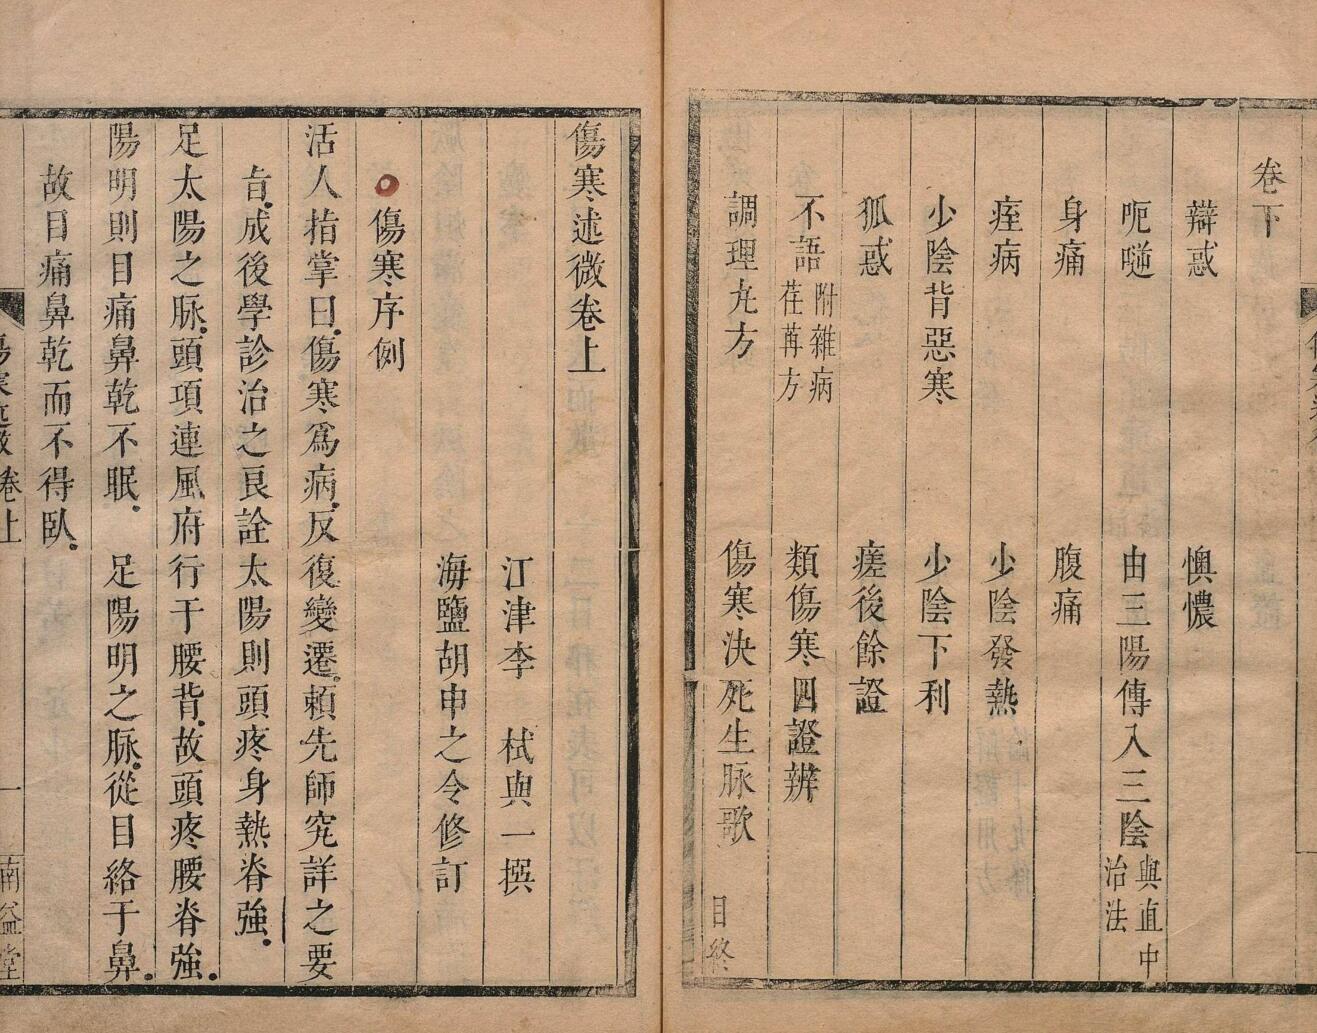 卷下
辯惑 懊憹
呃噦 由三陽傳入三陰與直中治法
身痛 腹痛
痓病 少陰發熱
少陰背惡寒 少陰下利
狐惑 瘥後餘證
不語附雜病荏苒方 類傷寒四證辨
調理九方 傷寒決死生脉歌 目終
傷寒述微卷上
江津李 栻與一撰
海鹽胡申之令修訂
傷寒序例
活人指掌曰.傷寒爲病.反復變遷.賴先師究詳之要
旨.成後學診治之良詮太陽則頭疼身熱脊強.
足太陽之脉.頭項連風府行于腰背.故頭疼腰脊強.
陽明則目痛鼻乾不眠. 足陽明之脉.從目絡于鼻.
故目痛鼻乾而不得臥.
傷寒述微 卷上 一 南益堂